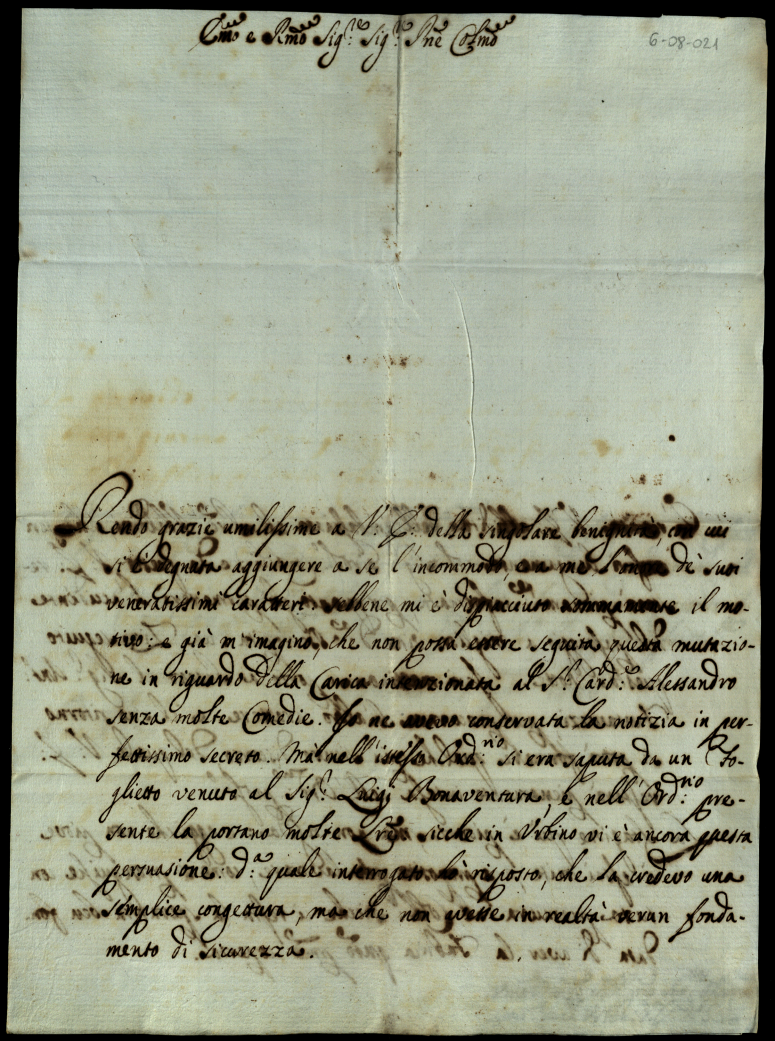 Emo e Rmo Sig.r Sig.r Pne Colmo
6-08-021
Rendo grazie umilissime a V. E. della singolare benignità, con cui
si è degnata aggiungere a se l'incommodo, e a me l'onore de' suoi
veneratissimi caratteri sebbene mi è dispiacciuto sommamente il mo-
tivo: e già m'imagino, che non possa essere seguita questa mutazio-
ne in riguardo della Carica intenzionata al S.r Card.e Alessandro
senza molte Comedie. Io ne avevo conservata la notizia in per-
fettissimo secreto. Mà nell'istesso Ord.rio si era saputa da un Fo-
glietto venuto al Sig.r Luigi Bonaventura, e nell'Ord.rio pre-
sente la portano molte Lre, sicche in Urbino vi è ancora questa
persuasione: d.a quale interrogato hò risposto, che la credevo una
semplice congettura, ma che non avesse in realtà verun fonda-
mento di sicurezza.